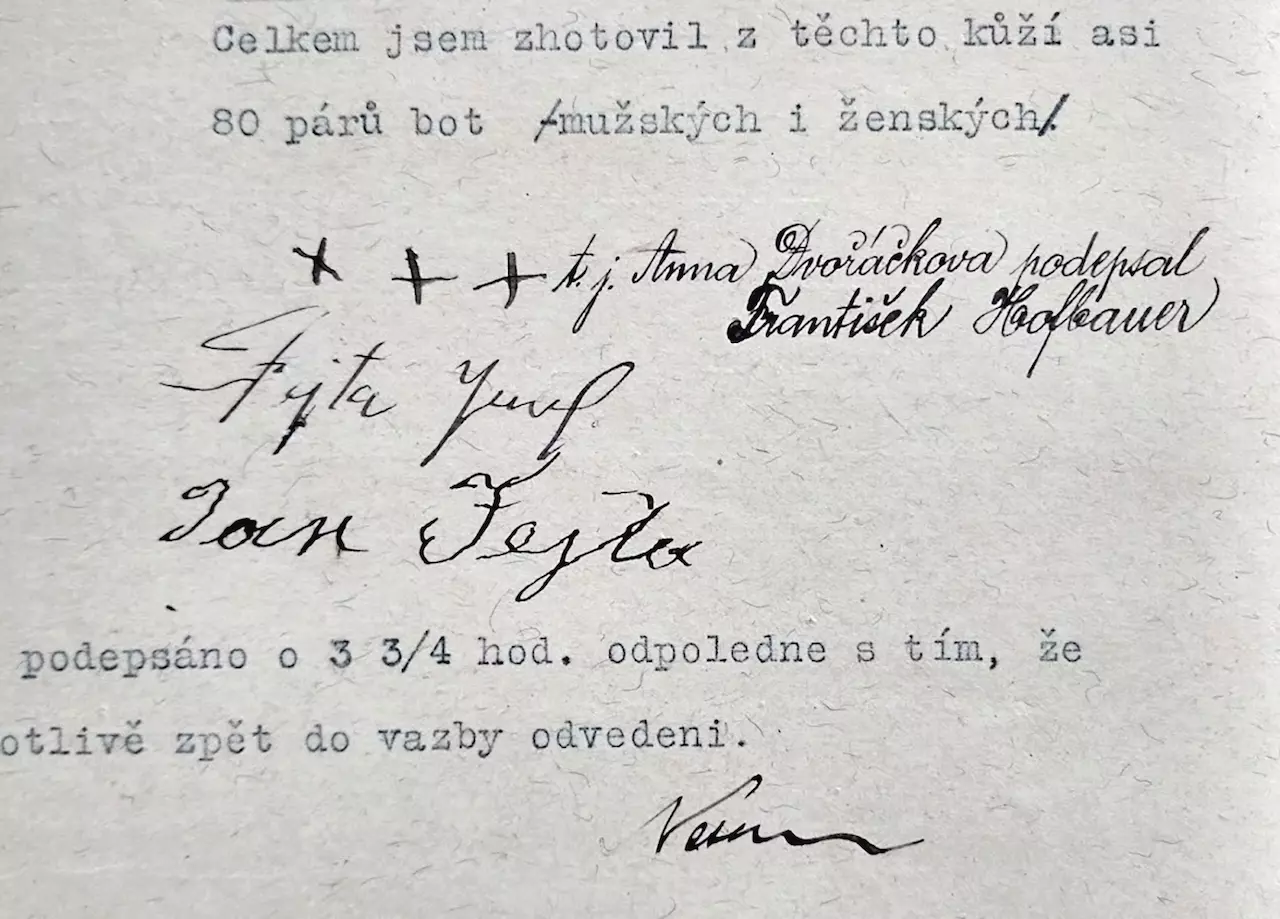 Celkem jsem zhotovil z těchto kůží asi
80 párů bot /mužských i ženských/.
+ + + t. j. Anna Dvořáčkova podepsal
František Hofbauer
Fejta Josef
Jan Fejta
podepsáno o 3 3/4 hod. odpoledne s tím, že
otlivě zpět do vazby odvedeni.